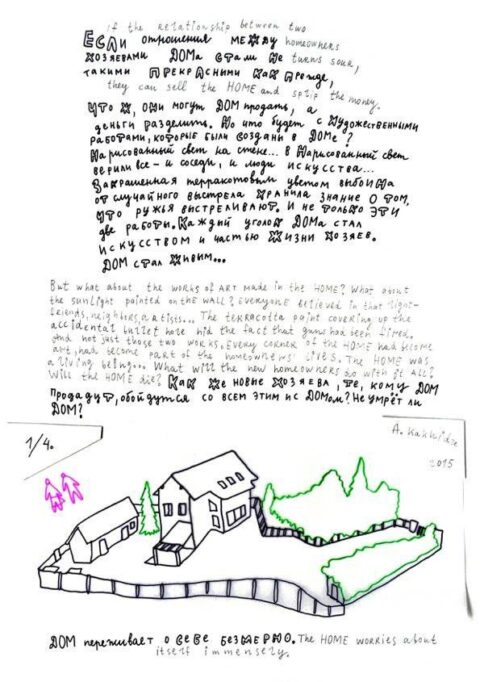 if the relationship between two
ЕСЛИ отношения между homeowners
хозяевами ДОМа стали не turns sour,
такими прекрасными как прежде,
they can sell the HOME and split the money.
Что ж, они могут ДОМ продать, а
деньги разделить. Но что будет с художественными
работами, которые были созданы в ДОМе?
Нарисованный свет на стене... в нарисованный свет
верили все - и соседи, и люди искусства...
Закрашенная терракотовым цветом выбоина
от случайного выстрела хранила знание о том,
что ружья выстреливают. И не только эти
две работы. Каждый уголок ДОМа стал
искусством и частью жизни хозяев.
ДОМ стал живым...
But what about the works of ART made in the HOME? What about
the sunlight painted on the WALL? Everyone believed in that light-
friends, neighbors, artists... The terracotta paint covering up the
accidental bullet hole hid the fact that guns had been fired.
And not just those two works. Every corner of the HOME had become
art, had become part of the homeowners' lives. The HOME was
a living being... What will the new homeowners do with it all?
Will the HOME die? Как же новые хозяева, те, кому ДОМ
продадут, обойдутся со всем этим ДОМом? Не умрёт ли
ДОМ?
1/4.
A. Kakhidze
2015
ДОМ переживает о себе безмерно. The HOME worries about
itself immensely.